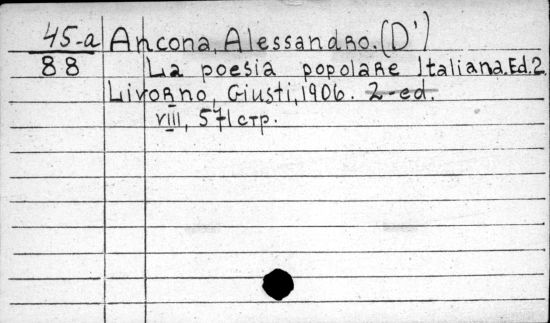 45-a Ancona, Alessandro. (D')
88 La poesia popolare Italiana. Ed. 2.
Livorno, Giusti, 1906. 2-ed.
VIII, 571 стр.